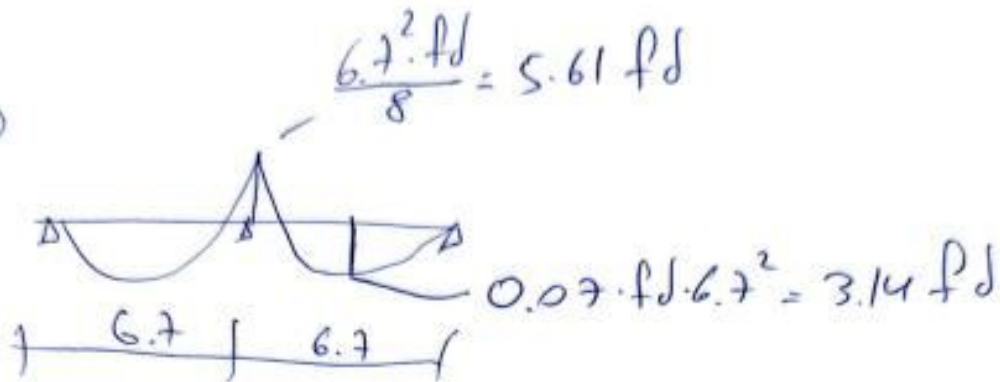 6.7².fd
8
= 5.61 fd
0.07.fd.6.7² = 3.14 fd
6.7 6.7